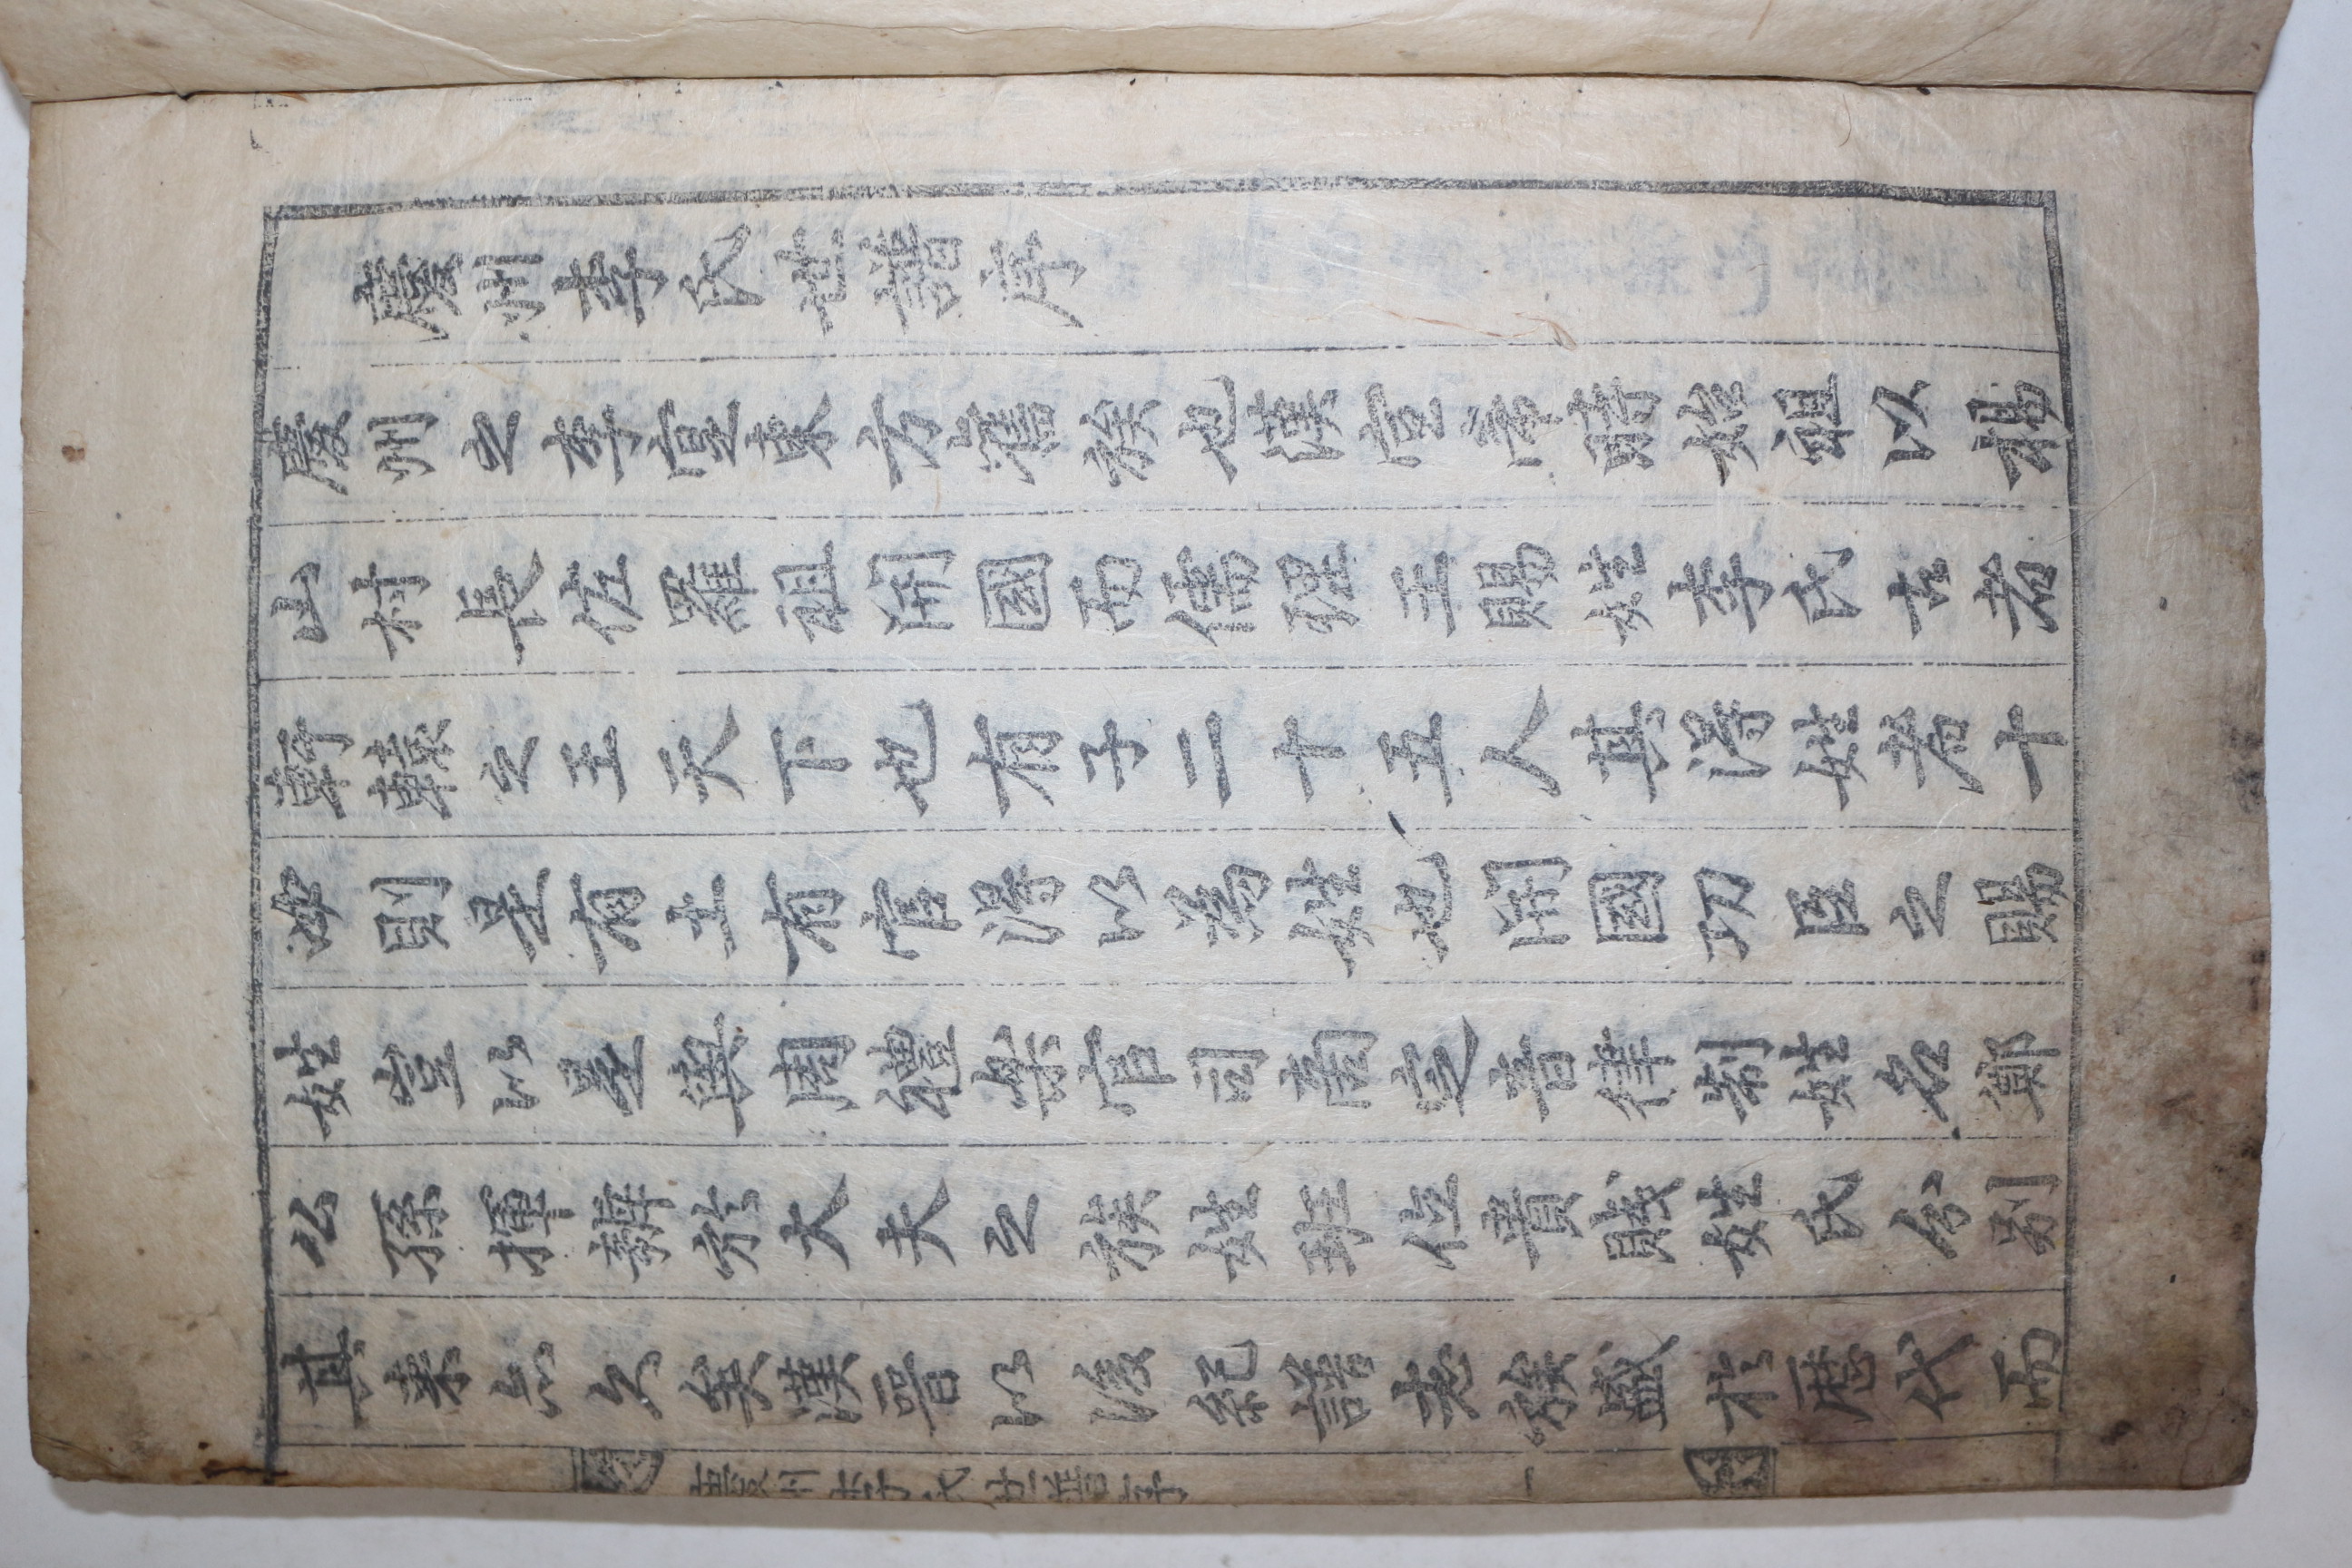 慶州李氏世譜序
慶州之李寔東方舊族也漢宣帝時始祖以楊
山村長佐羅祖開國而儒理王賜姓李氏古者
軒轅之王天下也有子二十五人其得姓者十
則是有土有官得以為姓也開國功臣之賜
姓豈以是與周禮楽官司商定音律制姓名鄭
公孫揮辨於大夫之族姓班位貴賤姓氏分別
其来亦久矣漢晉以後紀譜志族盛於歷代而
慶州李氏世譜序 一